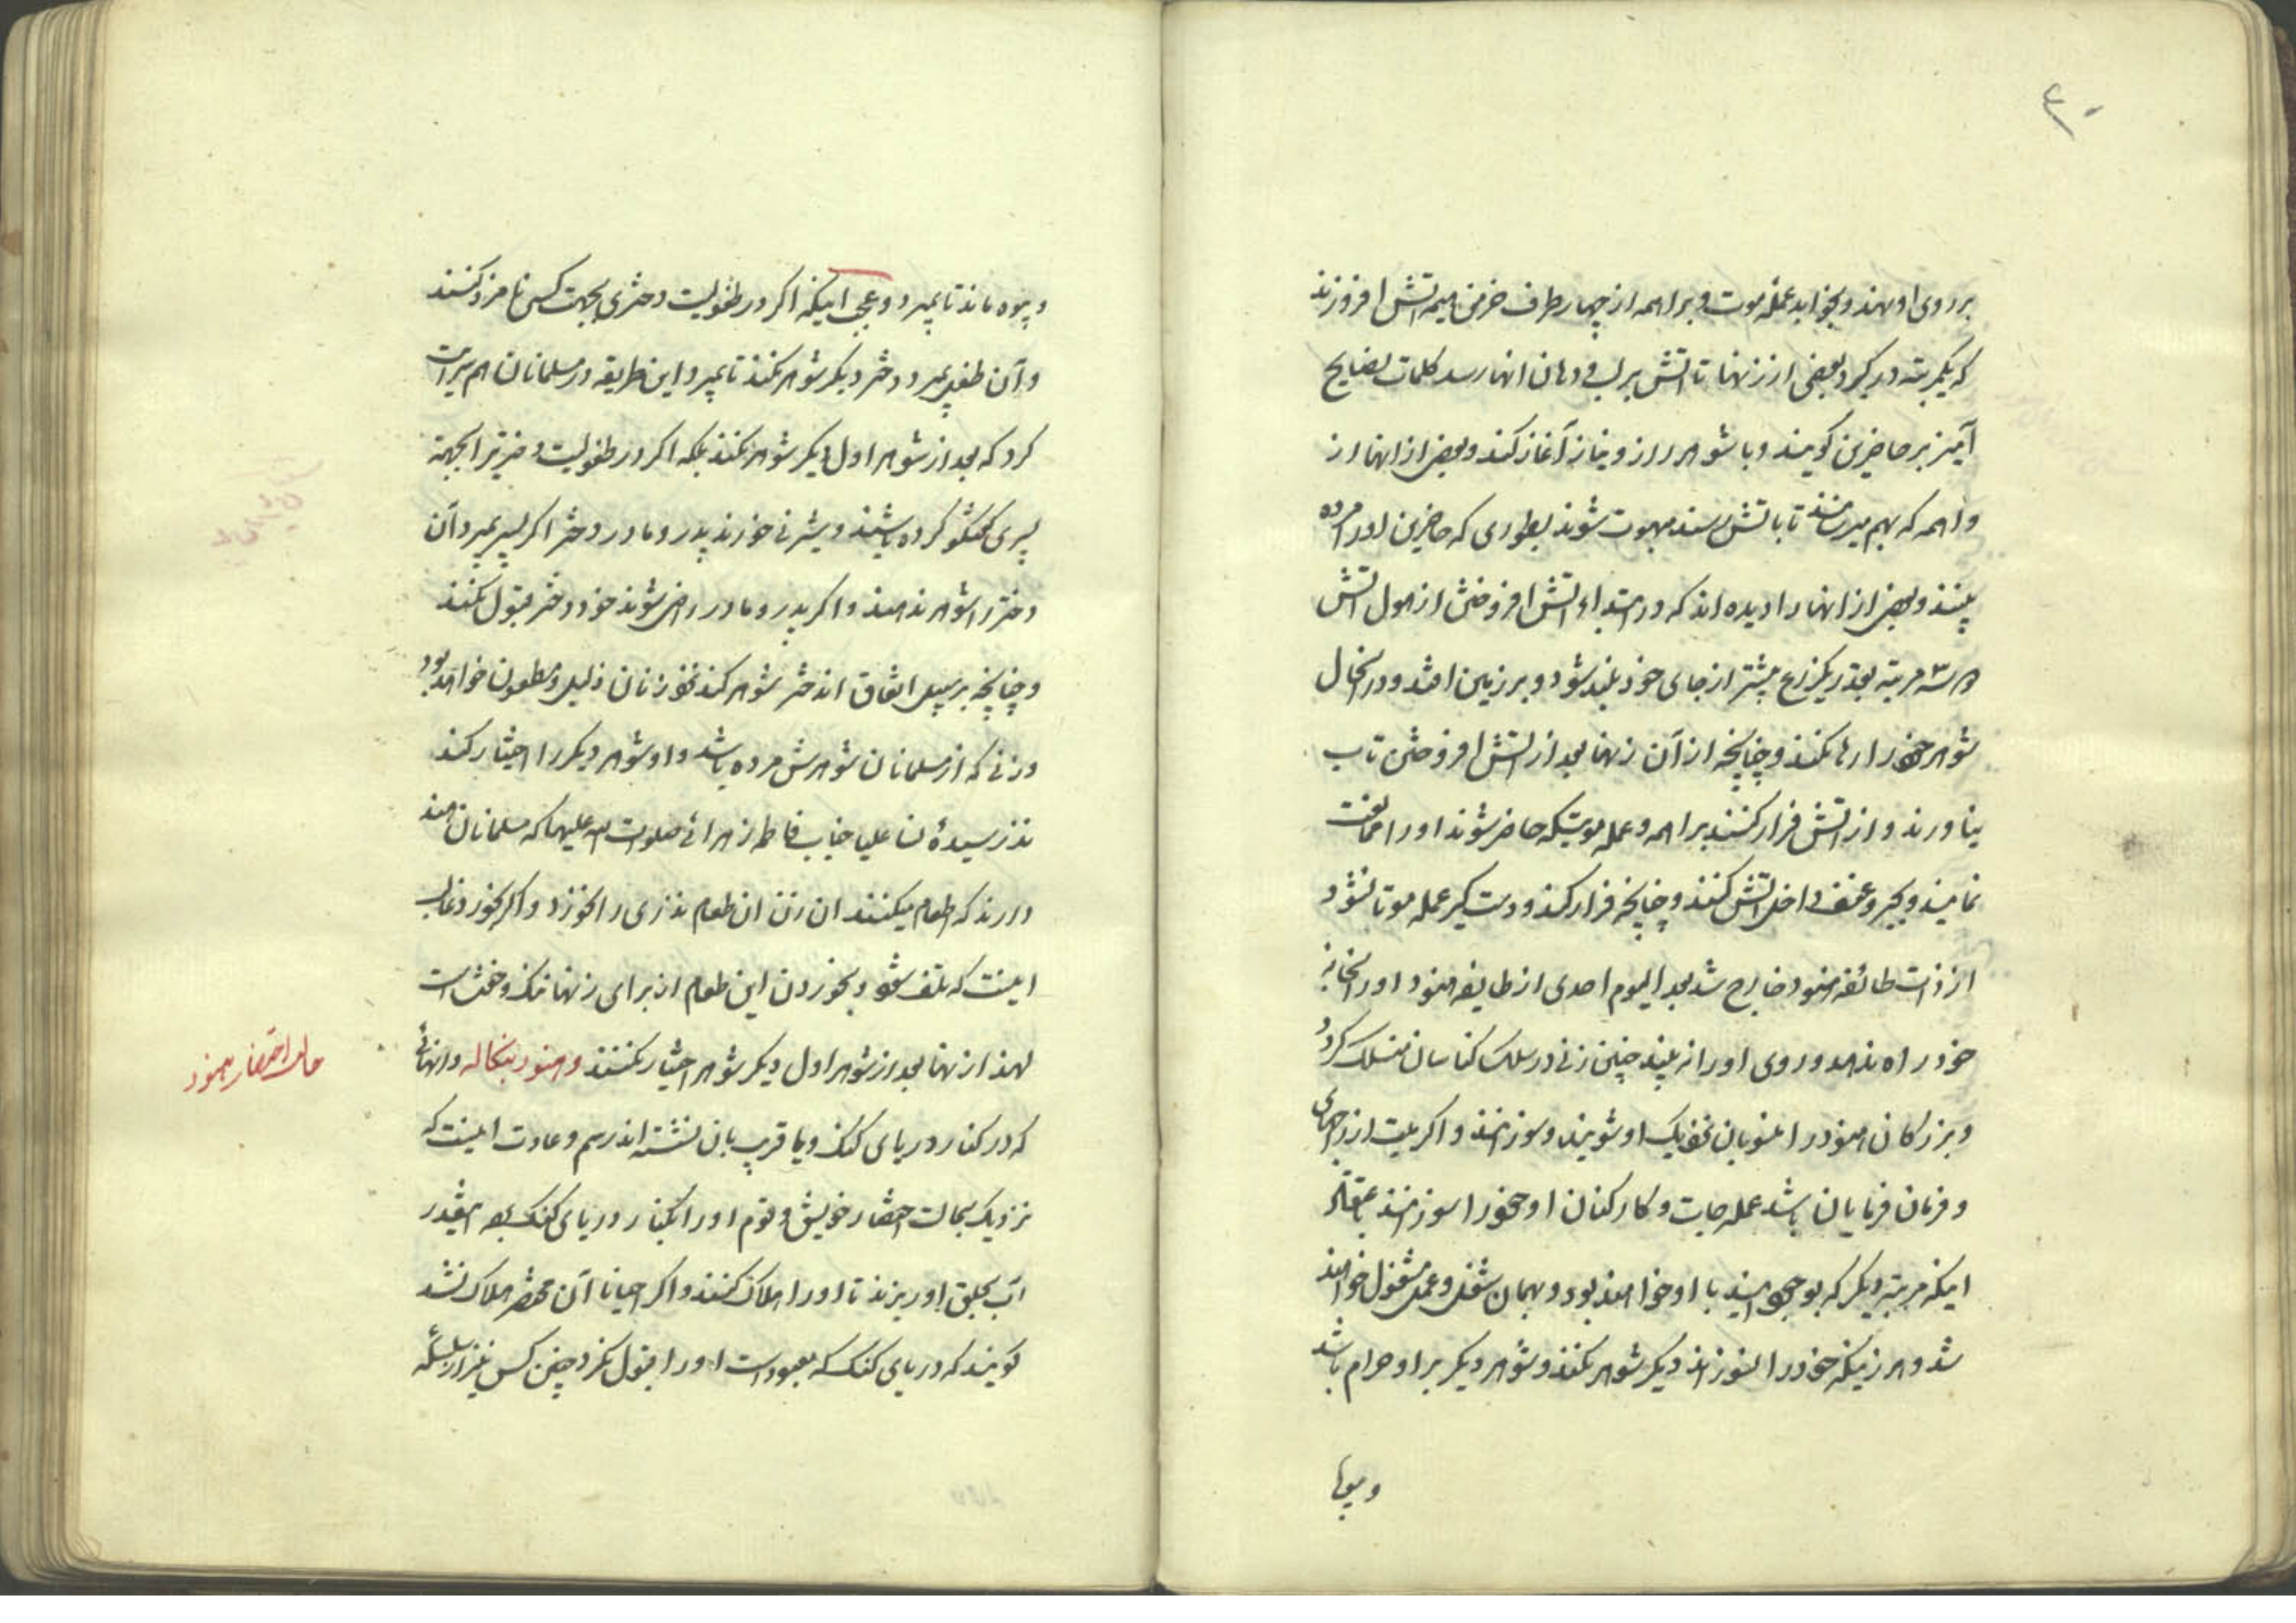 ۴۰
بر روی او نهند و بخوابد عمله موت و براهمه از چهار طرف خرمن هیمه آتش افروزند
که یکمرتبه در گیرد بعضی از زنها تا آتش بر لب و دهان انها رسد کلمات نصایح
آمیز بر حاضرین گویند و با شوهر راز و نیاز آغاز کند و بعضی از انها از
واهمه که بهم میرسانند تا باتش رسند مبهوت شوند بطوری که حاضرین او را مرده
بینند و بعضی از انها را دیده اند که در ابتداء آتش افروختن از هول آتش
۲ ۳ مرتبه بقدر یکذرع بیشتر از جای خود بلند شود و بر زمین افتد و در انحال
شوهر خود را رها نکند و چنانچه از آن زنها بعد از آتش افروختن تاب
نیاورند و از آتش فرار کنند براهمه و عمله موتیکه حاضر شوند او را ممانعت
نمایند و بجبر و عنف داخل آتش کنند و چنانچه فرار کند و دست گیر عمله موتا نشود
از ذات طائفه هنود خارج شد بعد الیوم احدی از طایفه هنود او را بخانه
خود راه ندهد و روی او را نه بیند چنین زنی در سلک کناسان منسلک گردد
و بزرکان هنود را منسوبان نزدیک او شویند و سوزانند و اگر میت از راجهای
و فرمان فرمایان باشد عمله جات و کارکنان او خود را سوزانند باعتقاد
اینکه مرتبه دیگر که بوجود ایند با او خواهند بود و بهمان شغل و عمل مشغول خواهند
شد و هر زنیکه خود را نسوزاند دیگر شوهر نکند و شوهر دیگر بر او حرام باشد
و بیوه ماند تا بمیرد و عجب اینکه اگر در طفولیت دختری بجهت کسی نامزد کنند
و آن طفل بمیرد دختر دیگر شوهر نکند تا بمیرد و این طریقه در مسلمانان هم سرایت
کرد که بعد از شوهر اول دیگر شوهر نکند بلکه اگر در طفولیت دختریرا بجهة
پسری گفتگو کرده باشند و شیرنی خورند پدر و مادر دختر اگر پسر بمیرد آن
دختر را شوهر ندهند و اگر پدر و مادر راضی شوند خود دختر قبول نکند
و چنانچه بر سبیل اتفاق اندختر شوهر کند نزد زنان ذلیل و مطعون خواهد بود
و زنی که از مسلمانان شوهرش مرده باشد و او شوهر دیگر را اختیار کند
نذر سیدهٔ نسا علیا جناب فاطمه زهرائی صلوات الله علیها که مسلمانان هند
دارند که طعام میکنند ان زن ان طعام نذری را نخورد و اگر بخورد غالب
اینست که تلف شود و نخوردن این طعام از برای زنها ننک و خفت است
لهذا زنها بعد از شوهر اول دیگر شوهر اختیار نکنند و هنود بنکاله و انهائی
که در کنار دریای کنک و یا قریب بان نشسته اند رسم و عادت اینست که
نزدیک بحالت احتضار خویش و قوم او را بکنار دریای کنک برده انقدر
آب بحلق او ریزند تا او را هلاک کنند و اگر احیانا آن محتضر هلاک نشد
گویند که دریای کنک که معبود است او را قبول نکرد چنین کس نیز از سلسله
و بیوها
حالت احتضار هنود